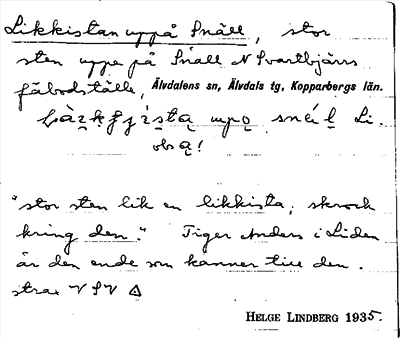 Likkistan uppå Snäll, stor
sten uppe på Snäll N Svartbjärns
fäbodställe, Älvdalens sn, Älvdals tg, Kopparbergs län.
Li.
obs ą!
"stor sten lik en likkista, skrock
kring den." Tiger Anders i Liden
är den ende som känner till den.
strax V SV
HELGE LINDBERG 1935.